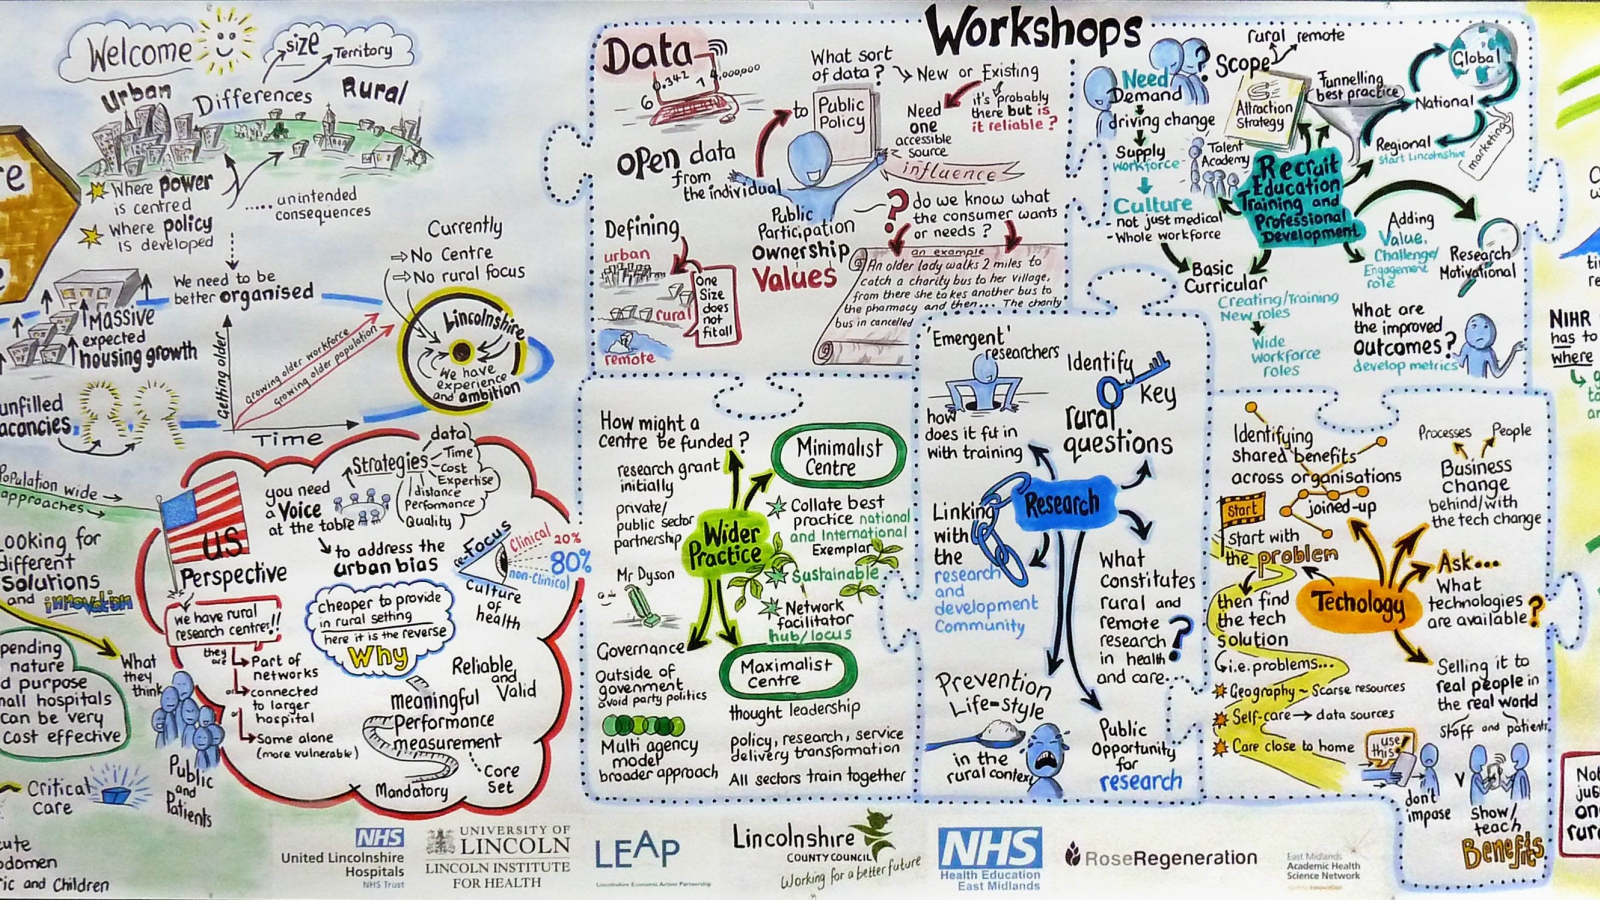 Welcome
size
Territory
Urban
Differences
Rural
Where power
is centred
Where policy
is developed
..... unintended
consequences
We need to be
better organised
Massive
expected
housing growth
unfilled
Currently
⇒No Centre
⇒No rural focus
Lincolnshire
We have
experience
and ambition
Getting older
growing older workforce
growing older population
Time
Population wide →
approaches →
Looking for
different
solutions
and innovation
nature
purpose
hospitals
can be very
cost effective
What
they
think
Public
and
Patients
Critical
Care
and Children
US
Perspective
we have rural
research centres!!
they
are
Part of
networks
or
connected
to larger
hospital
or
Some alone
(more vulnerable)
you need
a Voice
at the table
Strategies
data
Time
Cost
Expertise
distance
Performance
Quality
to address the
urban bias
re-Focus
Clinical 20%
80%
non-Clinical
Culture
of
health
cheaper to provide
in rural setting
here it is the reverse
Why
Reliable
and
Valid
meaningful
Performance
measurement
Core
Set
Mandatory
Workshops
Data
6
0.342
7
1,000,000
What sort
of data?
New or Existing
Need
one
accessible
source
it's probably
there but is
it reliable?
to
Public
Policy
open data
from
the individual
influence
Public
Participation
ownership
Values
? do we know what
the consumer wants
or needs?
Defining
urban
rural
remote
One
Size
does
not
fit all
an example
An older lady walks 2 miles to
catch a charity bus to her village,
from there she takes another bus to
the pharmacy and then.... The charity
bus in cancelled
Need
Demand
driving change
Supply
workforce
Culture
not just medical
-Whole workforce
?
Scope
rural
remote
Attraction
Strategy
Funnelling
best practice
Global
National
Regional
Start Lincolnshire
marketing
Talent
Academy
Recruit
Education
Training and
Professional
Development
Basic
Curricular
Creating/Training
New roles
Wide
workforce
roles
Adding
Value,
Challenge/
Engagement
role
Research
Motivational
What are
the improved
outcomes?
develop metrics
How might a
centre be funded?
research grant
initially
private/
public sector
partnership
Mr Dyson
Governance
Outside of
goverment
avoid party politics
Multi agency
model
broader approach
Wider
Practice
Minimalist
Centre
Collate best
practice national
and International
Exemplar
Sustainable
Network
facilitator
hub/locus
Maximalist
Centre
thought leadership
policy, research, service
delivery transformation
All sectors train together
'Emergent'
researchers
how
does it fit in
with training
Identify
Key
rural
questions
Research
Linking
with
the
research
and
development
Community
What
constitutes
rural and
remote
research
in health
and care..
?
Prevention
Life=style
in the
rural context
Public
Opportunity
for
research
Identifying
shared benefits
across organisations
joined-up
Processes
People
Business
Change
behind/with
the tech change
Start
start with
the problem
then find
the tech
solution
Techology
Ask...
What
technologies
are available?
(i.e. problems...
Geography ~ Scarse resources
Self-care → data sources
Care close to home
Selling it to
real people in
the real world
Staff and patients
use
this!
don't
impose
V
Show/
teach
Benefits
NIHR
has to
where
Not
NHS
United Lincolnshire
Hospitals
NHS Trust
UNIVERSITY OF
LINCOLN
LINCOLN INSTITUTE
FOR HEALTH
LEAP
Lincolnshire Economic Action Partnership
Lincolnshire
COUNTY COUNCIL
Working for a better future
NHS
Health Education
East Midlands
RoseRegeneration
East Midlands
Academic Health
Science Network